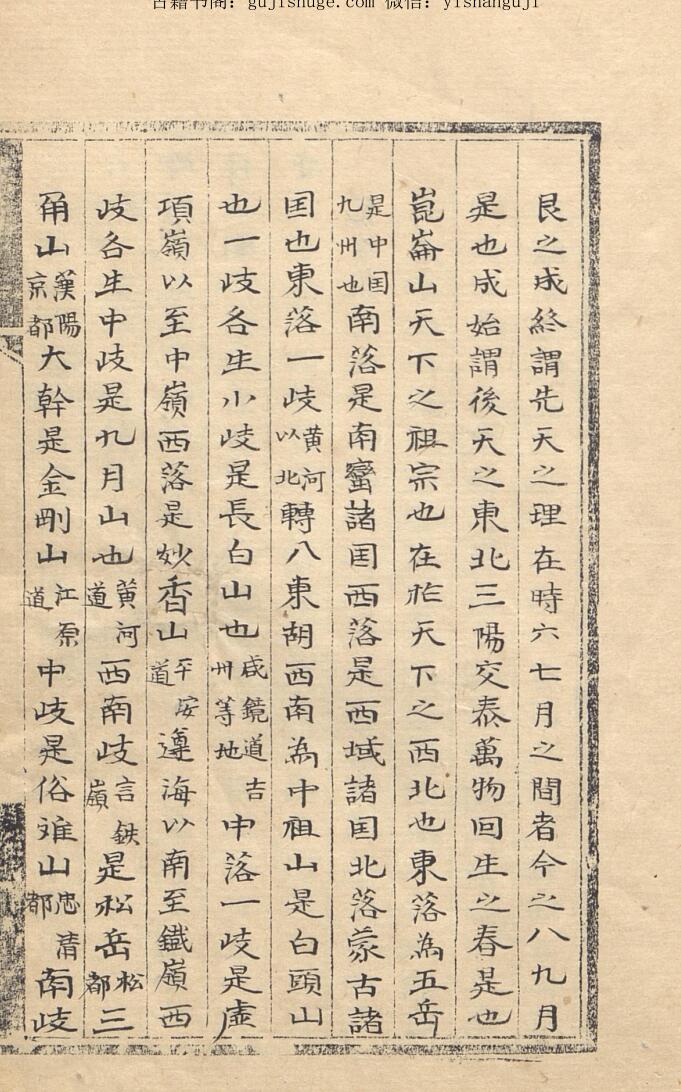 古籍书阁：gujishuge.com 微信：yishanguji
艮之成終謂先天之理在時六七月之間者今之八九月
是也成始謂後天之東北三陽交泰萬物回生之春是也
崑崙山天下之祖宗也在於天下之西北也東落為五岳
是中国九州也南落是南蠻諸国西落是西域諸国北落蒙古諸
国也東落一歧黄河以北轉八東胡西南為中祖山是白頭山
也一歧各生小歧是長白山也咸鏡道吉州等地中落一歧是虛
項嶺以至中嶺西落是妙香山平安道遵海以南至鐵嶺西
歧各生中歧是九月山也黄河道西南歧言鉄嶺是松岳松都三
角山漢陽京都大幹是金剛山江原道中歧是俗难山忠清都南歧